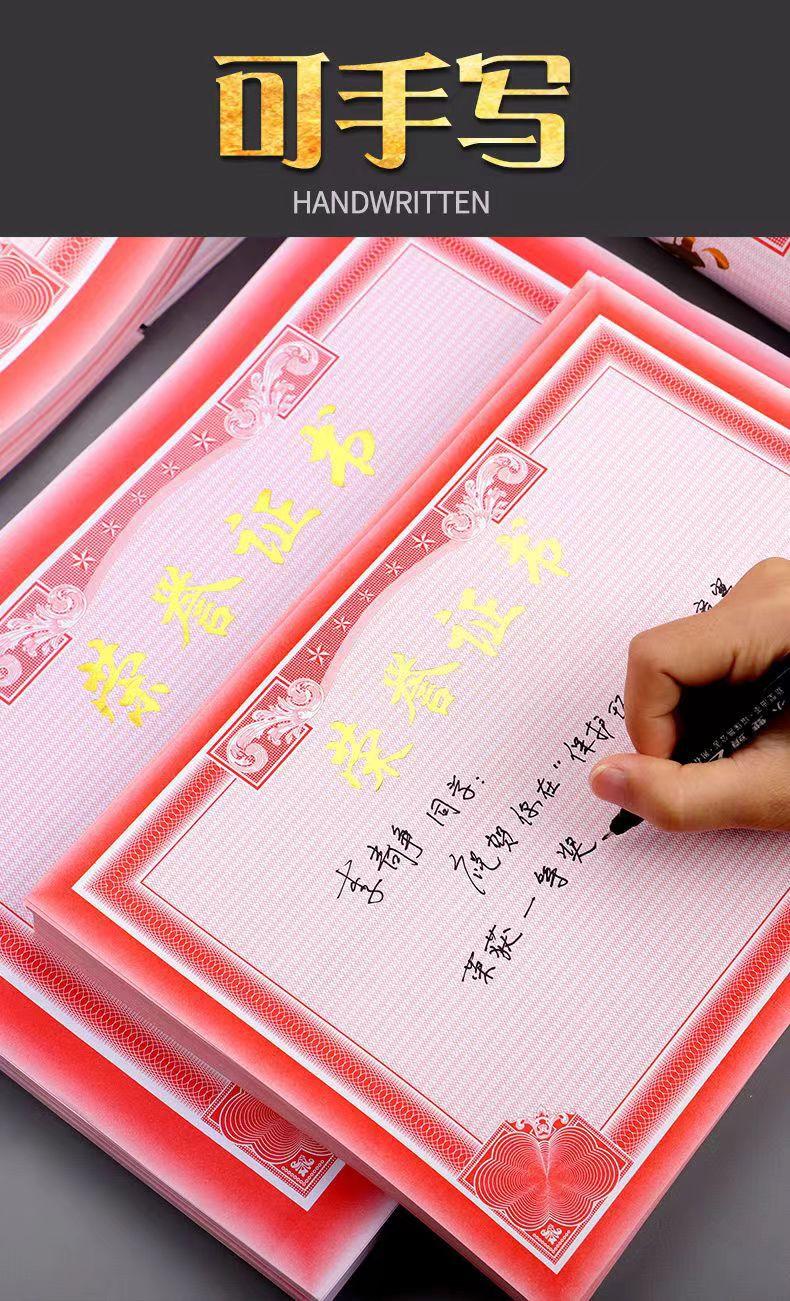 可手写
HANDWRITTEN
荣誉证书
荣誉证书
李静同学:
祝贺你在“保护
荣获一等奖